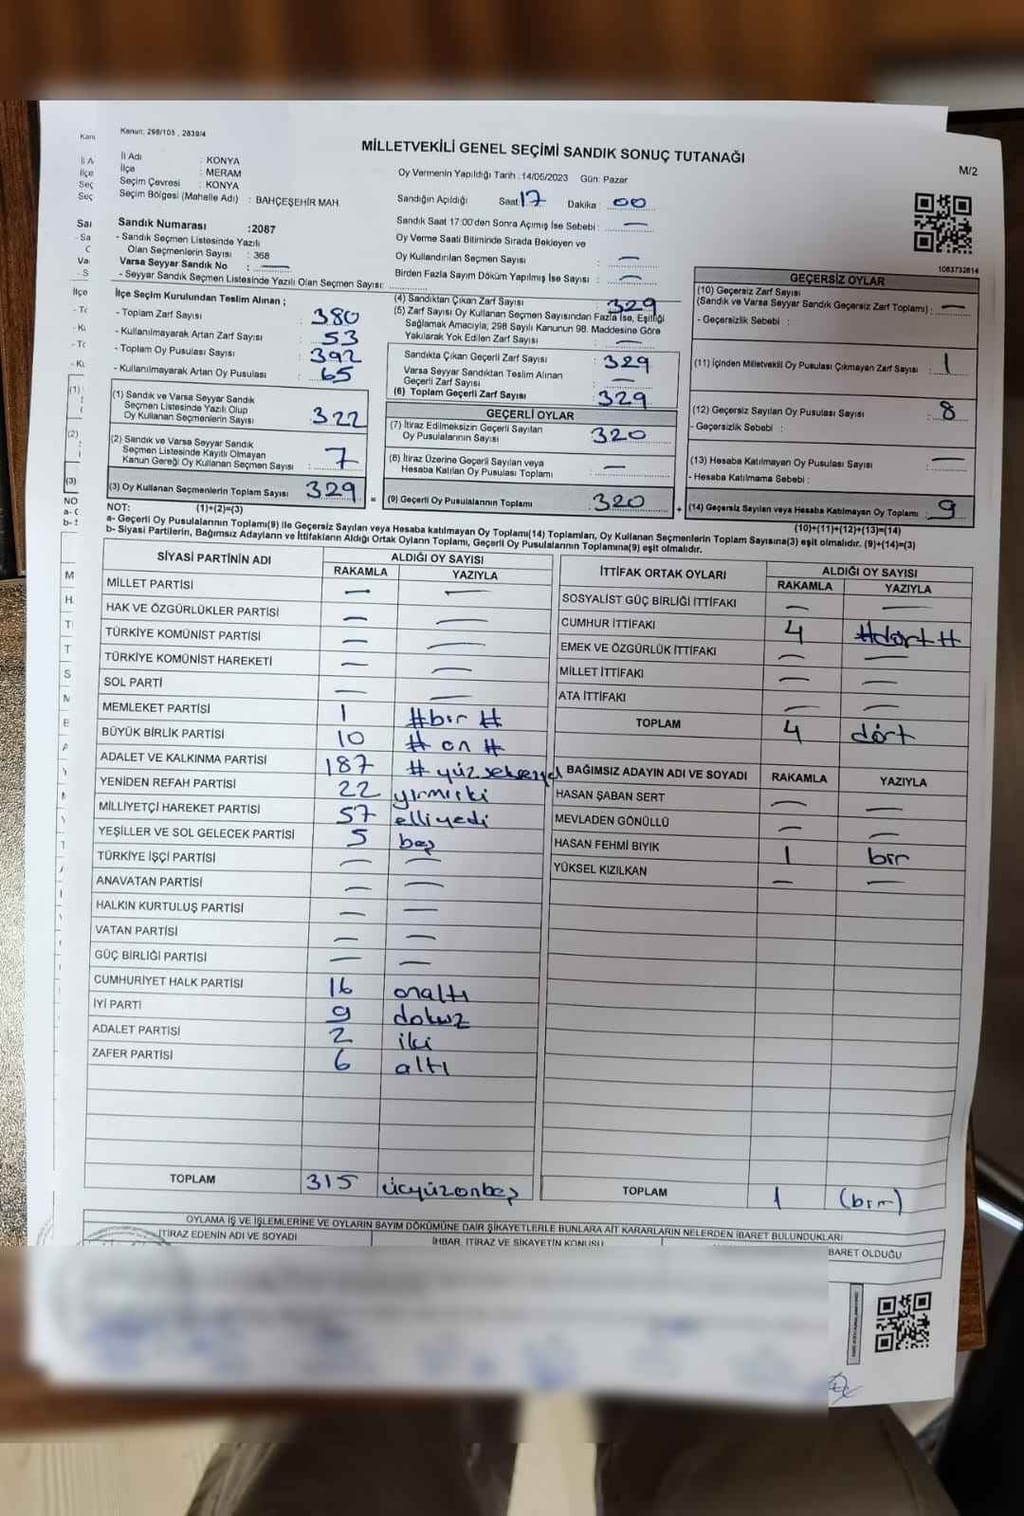 Kanun: 298/105 , 2839/4
MİLLETVEKİLİ GENEL SEÇİMİ SANDIK SONUÇ TUTANAĞI
M/2
İl Adı : KONYA
İlçe : MERAM
Seçim Çevresi : KONYA
Seçim Bölgesi (Mahalle Adı) : BAHÇEŞEHİR MAH.
Oy Vermenin Yapıldığı Tarih :14/05/2023 Gün: Pazar
Sandığın Açıldığı Saat 17 Dakika : 00
Sandık Saat 17:00'den Sonra Açımış İse Sebebi : —
Oy Verme Saati Bitiminde Sırada Bekleyen ve
Oy Kullandırılan Seçmen Sayısı : —
Birden Fazla Sayım Döküm Yapılmış İse Sayısı : —
Sandık Numarası :2087
- Sandık Seçmen Listesinde Yazılı
Olan Seçmenlerin Sayısı : 368
Varsa Seyyar Sandık No : —
- Seyyar Sandık Seçmen Listesinde Yazılı Olan Seçmen Sayısı:
1083732614
İlçe Seçim Kurulundan Teslim Alınan ;
- Toplam Zarf Sayısı : 380
- Kullanılmayarak Artan Zarf Sayısı : 53
- Toplam Oy Pusulası Sayısı : 392
- Kullanılmayarak Artan Oy Pusulası : 65
(1) Sandık ve Varsa Seyyar Sandık
Seçmen Listesinde Yazılı Olup
Oy Kullanan Seçmenlerin Sayısı : 322
(2) Sandık ve Varsa Seyyar Sandık
Seçmen Listesinde Kayıtlı Olmayan
Kanun Gereği Oy Kullanan Seçmen Sayısı : 7
(3) Oy Kullanan Seçmenlerin Toplam Sayısı : 329
(4) Sandıktan Çıkan Zarf Sayısı : 329
(5) Zarf Sayısı Oy Kullanan Seçmen Sayısından Fazla İse, Eşitliği
Sağlamak Amacıyla, 298 Sayılı Kanunun 98. Maddesine Göre
Yakılarak Yok Edilen Zarf Sayısı : —
Sandıkta Çıkan Geçerli Zarf Sayısı : 329
Varsa Seyyar Sandıktan Teslim Alınan
Geçerli Zarf Sayısı : —
(6) Toplam Geçerli Zarf Sayısı : 329
GEÇERLİ OYLAR
(7) İtiraz Edilmeksizin Geçerli Sayılan
Oy Pusulalarının Sayısı : 320
(8) İtiraz Üzerine Geçerli Sayılan veya
Hesaba Katılan Oy Pusulası Toplamı : —
= (9) Geçerli Oy Pusulalarının Toplamı : 320
GEÇERSİZ OYLAR
(10) Geçersiz Zarf Sayısı
(Sandık ve Varsa Seyyar Sandık Geçersiz Zarf Toplamı) : —
- Geçersizlik Sebebi :
(11) İçinden Milletvekili Oy Pusulası Çıkmayan Zarf Sayısı : 1
(12) Geçersiz Sayılan Oy Pusulası Sayısı : 8
- Geçersizlik Sebebi :
(13) Hesaba Katılmayan Oy Pusulası Sayısı : —
- Hesaba Katılmama Sebebi :
+ (14) Geçersiz Sayılan veya Hesaba Katılmayan Oy Toplamı : 9
NOT: (1)+(2)=(3)
(10)+(11)+(12)+(13)=(14)
a- Geçerli Oy Pusulalarının Toplamı(9) ile Geçersiz Sayılan veya Hesaba katılmayan Oy Toplamı(14) Toplamları, Oy Kullanan Seçmenlerin Toplam Sayısına(3) eşit olmalıdır. (9)+(14)=(3)
b- Siyasi Partilerin, Bağımsız Adayların ve İttifakların Aldığı Ortak Oyların Toplamı, Geçerli Oy Pusulalarının Toplamına(9) eşit olmalıdır.
SİYASİ PARTİNİN ADI ALDIĞI OY SAYISI
RAKAMLA YAZIYLA
MİLLET PARTİSİ — —
HAK VE ÖZGÜRLÜKLER PARTİSİ — —
TÜRKİYE KOMÜNİST PARTİSİ — —
TÜRKİYE KOMÜNİST HAREKETİ — —
SOL PARTİ — —
MEMLEKET PARTİSİ 1 #bir #
BÜYÜK BİRLİK PARTİSİ 10 # on #
ADALET VE KALKINMA PARTİSİ 187 # yüzseksenyedi
YENİDEN REFAH PARTİSİ 22 yirmiiki
MİLLİYETÇİ HAREKET PARTİSİ 57 elliyedi
YEŞİLLER VE SOL GELECEK PARTİSİ 5 beş
TÜRKİYE İŞÇİ PARTİSİ — —
ANAVATAN PARTİSİ — —
HALKIN KURTULUŞ PARTİSİ — —
VATAN PARTİSİ — —
GÜÇ BİRLİĞİ PARTİSİ — —
CUMHURİYET HALK PARTİSİ 16 onaltı
İYİ PARTİ 9 dokuz
ADALET PARTİSİ 2 iki
ZAFER PARTİSİ 6 altı
TOPLAM 315 üçyüzonbeş
İTTİFAK ORTAK OYLARI ALDIĞI OY SAYISI
RAKAMLA YAZIYLA
SOSYALİST GÜÇ BİRLİĞİ İTTİFAKI — —
CUMHUR İTTİFAKI 4 #dört#
EMEK VE ÖZGÜRLÜK İTTİFAKI — —
MİLLET İTTİFAKI — —
ATA İTTİFAKI — —
TOPLAM 4 dört
BAĞIMSIZ ADAYIN ADI VE SOYADI RAKAMLA YAZIYLA
HASAN ŞABAN SERT — —
MEVLADEN GÖNÜLLÜ — —
HASAN FEHMİ BIYIK 1 bir
YÜKSEL KIZILKAN — —
TOPLAM 1 (bir)
OYLAMA İŞ VE İŞLEMLERİNE VE OYLARIN SAYIM DÖKÜMÜNE DAİR ŞİKAYETLERLE BUNLARA AİT KARARLARIN NELERDEN İBARET BULUNDUKLARI
İTİRAZ EDENİN ADI VE SOYADI
İHBAR, İTİRAZ VE ŞİKAYETİN KONUSU
BARET OLDUĞU